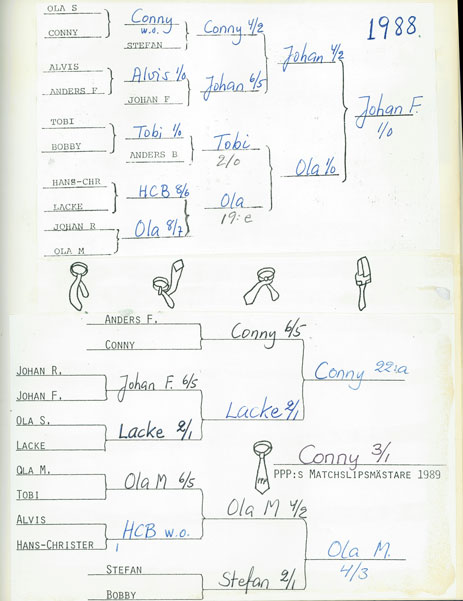 OLA S
CONNY
Conny
w.o.
STEFAN
Conny 4/2
1988.
ALVIS
ANDERS F
Alvis 1/0
JOHAN F
Johan 6/5
Johan 4/2
Johan F.
1/0
TOBI
BOBBY
Tobi 1/0
ANDERS B
Tobi
2/0
Ola 1/0
HANS-CHR
LACKE
HCB 8/6
Ola
19:e
JOHAN R
OLA M
Ola 8/7
ANDERS F.
CONNY
Conny 6/5
Conny 22:a
JOHAN R.
JOHAN F.
Johan F. 6/5
Lacke 2/1
OLA S.
LACKE
Lacke 2/1
Conny 3/1
PPP:S MATCHSLIPSMÄSTARE 1989
OLA M.
TOBI
Ola M 6/5
Ola M 4/2
ALVIS
HANS-CHRISTER
HCB w.o.
Ola M.
4/3
STEFAN
BOBBY
Stefan 2/1